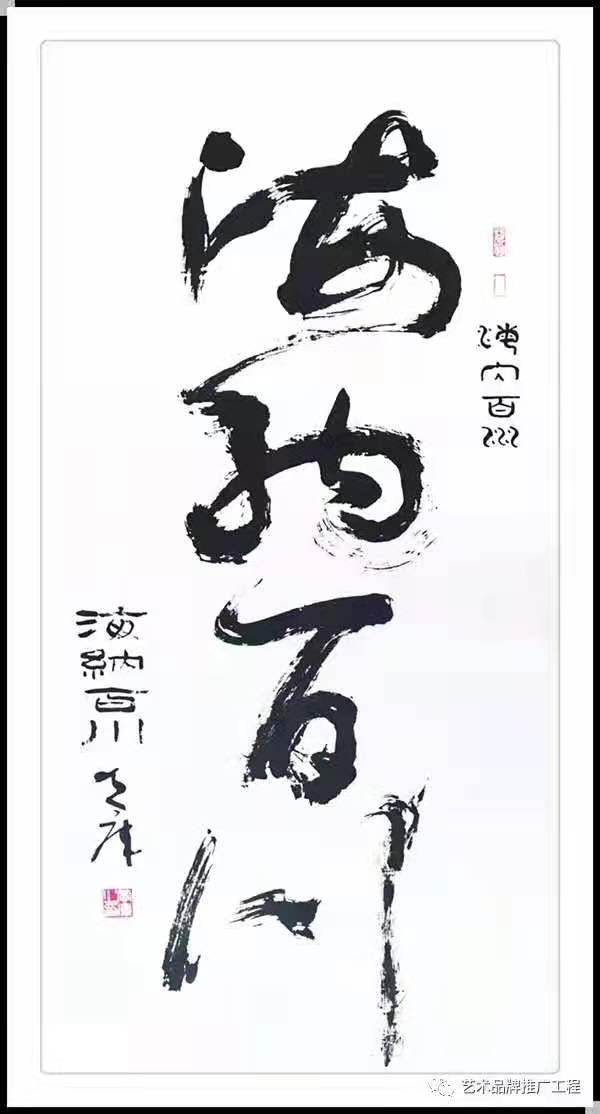 海纳百川
海内百川
海納百川
艺术品牌推广工程